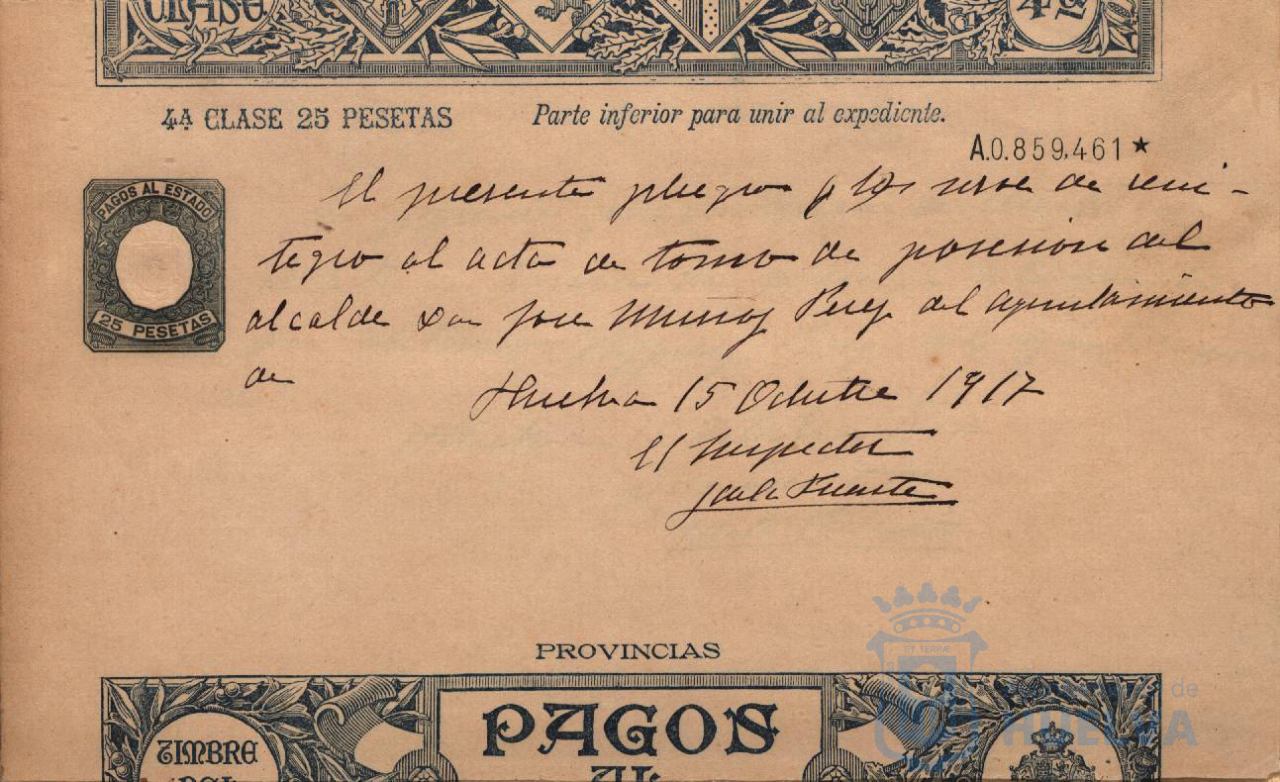 CLASE
4ª CLASE 25 PESETAS
Parte inferior para unir al expediente.
A.0.859,461★
PAGOS AL ESTADO
25 PESETAS
El presente pliego y los sirve de rein-
tegro al acta de toma de posesion del
alcalde Don Jose Muñoz Perez del ayuntamiento
de
Huelva 15 Octubre 1917
El Inspector
PROVINCIAS
TIMBRE
DEL
PAGOS
AL
ET TERRÆ
de
HUELVA